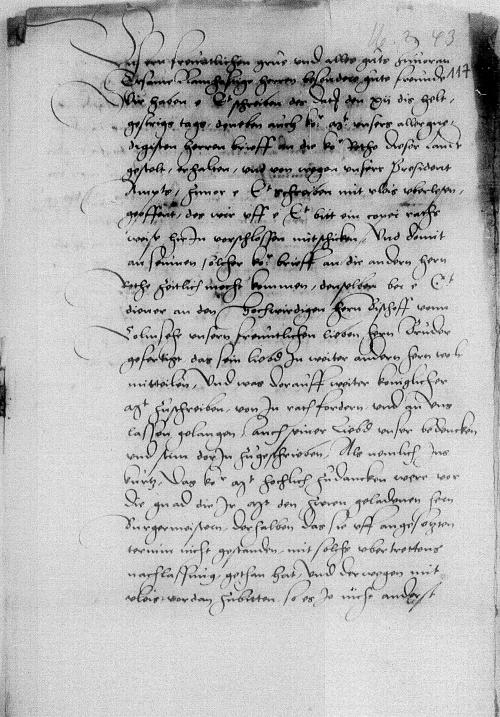 16. 3. 43
117
Unsern freuntlichen grus und alles guts zuvoran
Ersame Namhaftige herren besonders gute freunde
Wir haben e Et schreiben des dato den xii dis helt,
gestrigs tags, doneben auch ko. Mt. unsers allergne-
digisten herren brieff an die ko. Rethe dieser Lande
gestelt, erhalten, und von wegen unsers President
Ampts, sunder e Et schreiben mit vleis uberlesen,
geoffent, des wir uff e Et bitt ein copei raths
weise hir In vorschlossen mitschicken, Und domit
solcher ko. brieff an die andern hern
Rethe zeitlich mocht kommen, denselben bei e Et
diener an den Hochwirdigen hern Bischoff vom
Colmsehe unsern freuntlichen lieben hern Bruder
gefertigt, das sein liebd In weiter andern hern wol
mitteilen, Und was dorauff weiter koniglicher
Mt. zuschreiben, von In rath fordern und an uns
lassen gelangen, auch seiner liebd unser bedencken
und stim dorIn zugeschrieben, Als nemlich Ins
kurtz, Das ko. Mt. hochlich zudancken were vor
die gnad die Ir Mt. den zweien geladenen hern
Burgermeistern, derhalben das sie uff angesetzten
termin nicht gestanden, mit solchs ubertrettens
nachlassung, gethan hat, Und derwegen mit
vleis vordan zubitten, so es Je nicht anderst